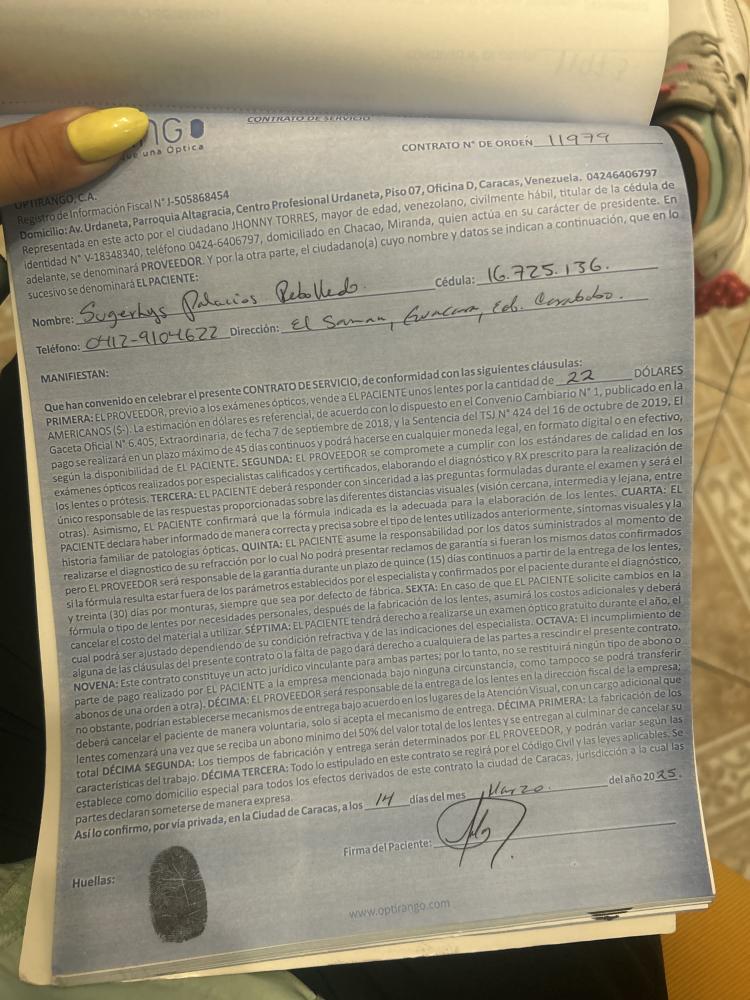 NGO
que una Óptica
CONTRATO DE SERVICIO
CONTRATO N° DE ORDEN 11979
OPTIRANGO, C.A.
Registro de Información Fiscal N° J-505868454
Domicilio: Av. Urdaneta, Parroquia Altagracia, Centro Profesional Urdaneta, Piso 07, Oficina D, Caracas, Venezuela. 04246406797
Representada en este acto por el ciudadano JHONNY TORRES, mayor de edad, venezolano, civilmente hábil, titular de la cédula de
identidad N° V-18348340, teléfono 0424-6406797, domiciliado en Chacao, Miranda, quien actúa en su carácter de presidente. En
adelante, se denominará PROVEEDOR. Y por la otra parte, el ciudadano(a) cuyo nombre y datos se indican a continuación, que en lo
sucesivo se denominará EL PACIENTE:
Nombre: Sugerhys Palacios Rebolledo. Cédula: 16.725.136.
Teléfono: 0412-9104622 Dirección: El Saman, Guacara, Edo. Carabobo.
MANIFIESTAN:
Que han convenido en celebrar el presente CONTRATO DE SERVICIO, de conformidad con las siguientes cláusulas:
PRIMERA: EL PROVEEDOR, previo a los exámenes ópticos, vende a EL PACIENTE unos lentes por la cantidad de 22 DÓLARES
AMERICANOS ($-). La estimación en dólares es referencial, de acuerdo con lo dispuesto en el Convenio Cambiario N° 1, publicado en la
Gaceta Oficial N° 6.405, Extraordinaria, de fecha 7 de septiembre de 2018, y la Sentencia del TSJ N° 424 del 16 de octubre de 2019. El
pago se realizará en un plazo máximo de 45 días continuos y podrá hacerse en cualquier moneda legal, en formato digital o en efectivo,
según la disponibilidad de EL PACIENTE. SEGUNDA: EL PROVEEDOR se compromete a cumplir con los estándares de calidad en los
exámenes ópticos realizados por especialistas calificados y certificados, elaborando el diagnóstico y RX prescrito para la realización de
los lentes o prótesis. TERCERA: EL PACIENTE deberá responder con sinceridad a las preguntas formuladas durante el examen y será el
único responsable de las respuestas proporcionadas sobre las diferentes distancias visuales (visión cercana, intermedia y lejana, entre
otras). Asimismo, EL PACIENTE confirmará que la fórmula indicada es la adecuada para la elaboración de los lentes. CUARTA: EL
PACIENTE declara haber informado de manera correcta y precisa sobre el tipo de lentes utilizados anteriormente, síntomas visuales y la
historia familiar de patologías ópticas. QUINTA: EL PACIENTE asume la responsabilidad por los datos suministrados al momento de
realizarse el diagnostico de su refracción por lo cual No podrá presentar reclamos de garantía si fueran los mismos datos confirmados
pero EL PROVEEDOR será responsable de la garantía durante un plazo de quince (15) días continuos a partir de la entrega de los lentes,
si la fórmula resulta estar fuera de los parámetros establecidos por el especialista y confirmados por el paciente durante el diagnóstico,
y treinta (30) días por monturas, siempre que sea por defecto de fábrica. SEXTA: En caso de que EL PACIENTE solicite cambios en la
fórmula o tipo de lentes por necesidades personales, después de la fabricación de los lentes, asumirá los costos adicionales y deberá
cancelar el costo del material a utilizar. SÉPTIMA: EL PACIENTE tendrá derecho a realizarse un examen óptico gratuito durante el año, el
cual podrá ser ajustado dependiendo de su condición refractiva y de las indicaciones del especialista. OCTAVA: El incumplimiento de
alguna de las cláusulas del presente contrato o la falta de pago dará derecho a cualquiera de las partes a rescindir el presente contrato.
NOVENA: Este contrato constituye un acto jurídico vinculante para ambas partes; por lo tanto, no se restituirá ningún tipo de abono o
parte de pago realizado por EL PACIENTE a la empresa mencionada bajo ninguna circunstancia, como tampoco se podrá transferir
abonos de una orden a otra). DÉCIMA: EL PROVEEDOR será responsable de la entrega de los lentes en la dirección fiscal de la empresa;
no obstante, podrían establecerse mecanismos de entrega bajo acuerdo en los lugares de la Atención Visual, con un cargo adicional que
deberá cancelar el paciente de manera voluntaria, solo si acepta el mecanismo de entrega. DÉCIMA PRIMERA: La fabricación de los
lentes comenzará una vez que se reciba un abono mínimo del 50% del valor total de los lentes y se entregan al culminar de cancelar su
total DÉCIMA SEGUNDA: Los tiempos de fabricación y entrega serán determinados por EL PROVEEDOR, y podrán variar según las
características del trabajo. DÉCIMA TERCERA: Todo lo estipulado en este contrato se regirá por el Código Civil y las leyes aplicables. Se
establece como domicilio especial para todos los efectos derivados de este contrato la ciudad de Caracas, jurisdicción a la cual las
partes declaran someterse de manera expresa.
Así lo confirmo, por vía privada, en la Ciudad de Caracas, a los 14 días del mes Marzo. del año 2025.
Firma del Paciente:
Huellas:
www.optirango.com